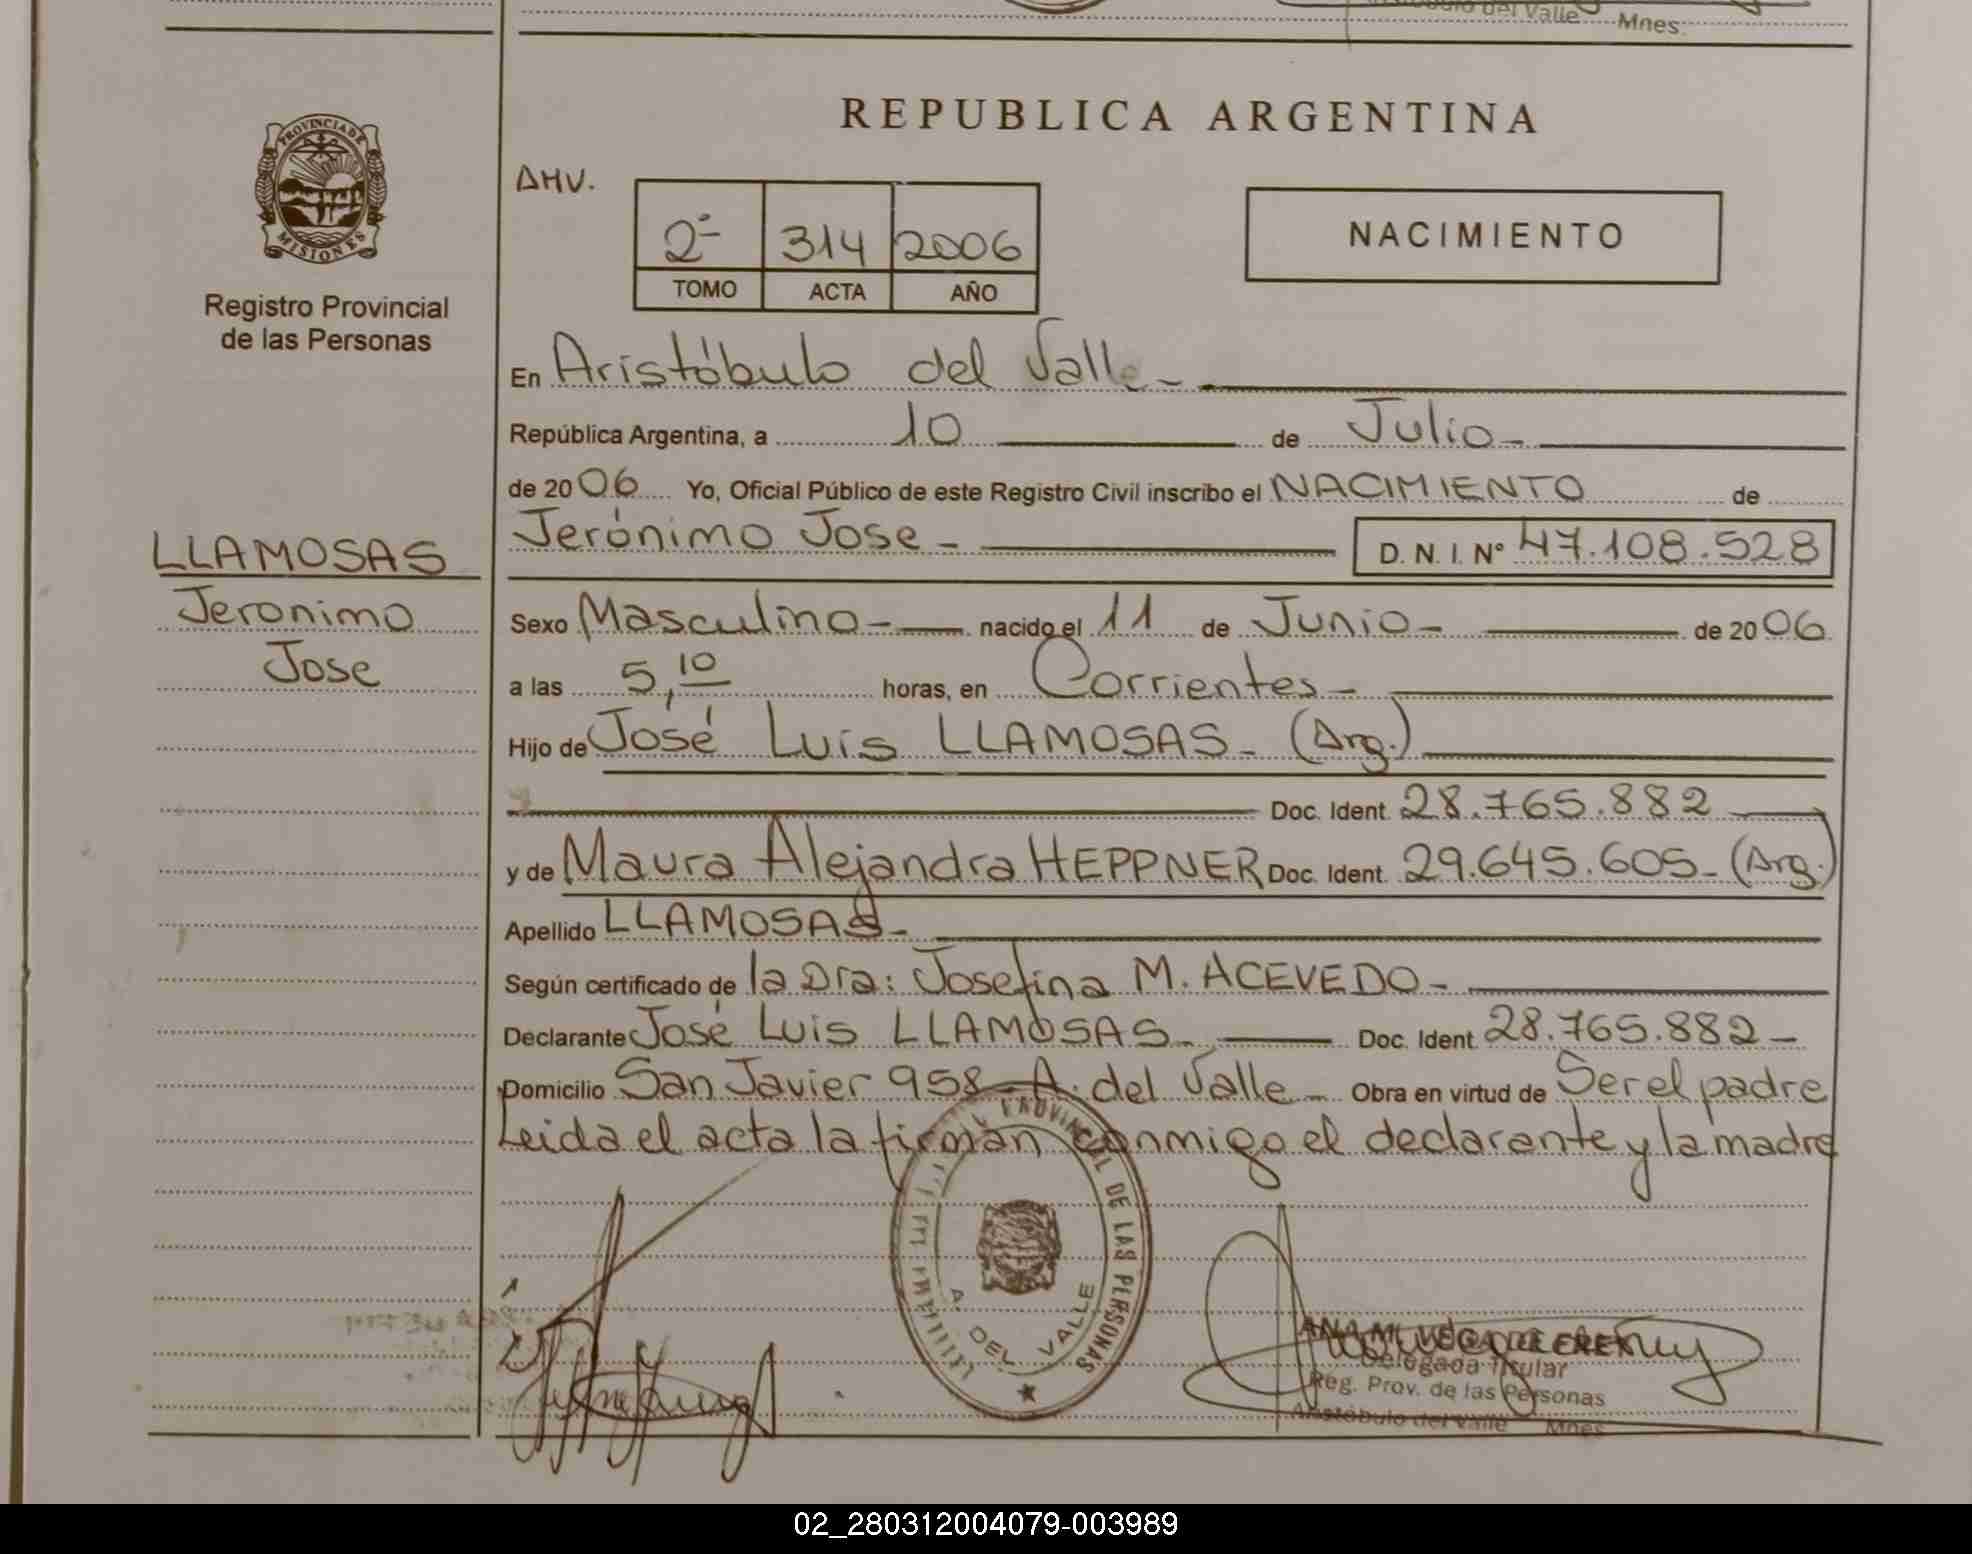 del Valle Mnes.
PROVINCIA DE
MISIONES
Registro Provincial
de las Personas
REPUBLICA ARGENTINA
AHV.
2º 314 2006
TOMO ACTA AÑO
NACIMIENTO
En Aristóbulo del Valle -
República Argentina, a 10 de Julio -
de 2006 Yo, Oficial Público de este Registro Civil inscribo el NACIMIENTO de
Jerónimo Jose - D. N. I. Nº 47.108.528
LLAMOSAS
Jeronimo
Jose
Sexo Masculino - nacido el 11 de Junio - de 2006
a las 5,10 horas, en Corrientes -
Hijo de José Luis LLAMOSAS - (Arg.)
Doc. Ident. 28.765.882
y de Maura Alejandra HEPPNER Doc. Ident. 29.645.605 - (Arg.)
Apellido LLAMOSAS -
Según certificado de la Dra: Josefina M. ACEVEDO -
Declarante José Luis LLAMOSAS - Doc. Ident. 28.765.882 -
Domicilio San Javier 958 - A. del Valle - Obra en virtud de Ser el padre
Leida el acta la firman conmigo el declarante y la madre
PROVINCIAL DE LAS PERSONAS
A. DEL VALLE
Delegada Titular
Reg. Prov. de las Personas
Aristóbulo del Valle Mnes
02_280312004079-003989